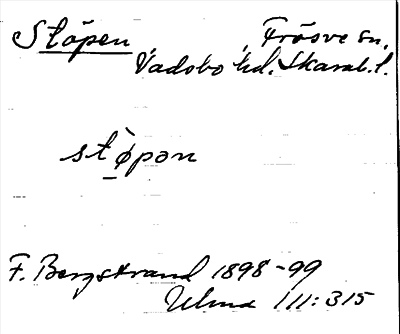 Stöpen, Frösve sn,
Vadsbo hd. Skarab.l.
stø̀pən
F. Bergstrand 1898-99
Ulma 111:315